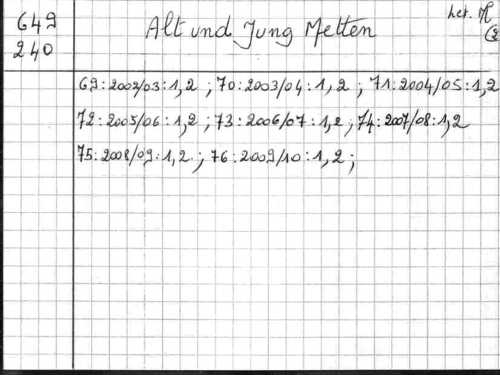 649
240
Alt und Jung Metten
69:2002/03:1,2 ; 70:2003/04:1,2 ; 71:2004/05:1,2
72:2005/06:1,2 ; 73:2006/07:1,2 ; 74:2007/08:1,2
75:2008/09:1,2. ; 76:2009/10:1,2 ;